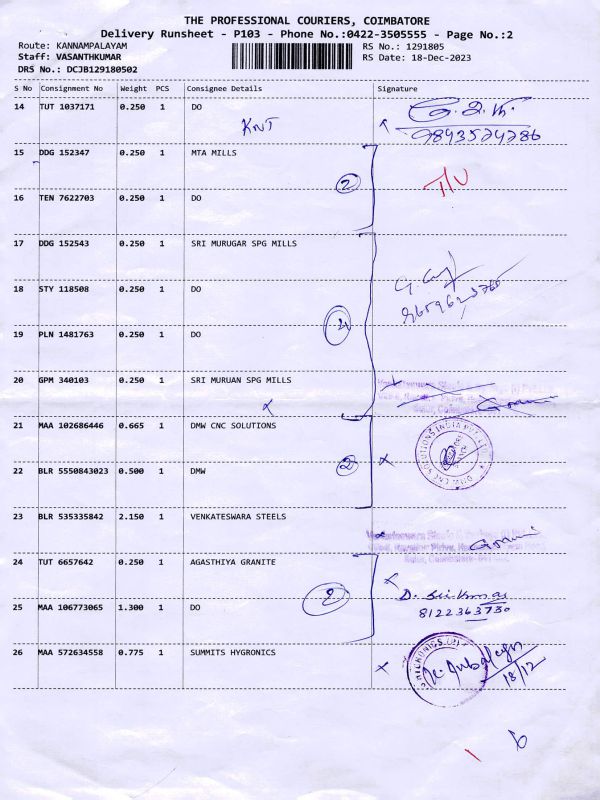 THE PROFESSIONAL COURIERS, COIMBATORE
Delivery Runsheet - P103 - Phone No.:0422-3505555 - Page No.:2
Route: KANNAMPALAYAM
RS No.: 1291805
Staff: VASANTHKUMAR
RS Date: 18-Dec-2023
DRS No.: DCJB129180502
S No Consignment No Weight PCS Consignee Details Signature
14 TUT 1037171 0.250 1 DO
KNT
9843574786
15 DDG 152347 0.250 1 MTA MILLS
2
T/U
16 TEN 7622703 0.250 1 DO
17 DDG 152543 0.250 1 SRI MURUGAR SPG MILLS
18 STY 118508 0.250 1 DO
4
19 PLN 1481763 0.250 1 DO
20 GPM 340103 0.250 1 SRI MURUAN SPG MILLS
21 MAA 102686446 0.665 1 DMW CNC SOLUTIONS
DMW CNC SOLUTIONS INDIA
2
22 BLR 5550843023 0.500 1 DMW
23 BLR 535335842 2.150 1 VENKATESWARA STEELS
24 TUT 6657642 0.250 1 AGASTHIYA GRANITE
2
25 MAA 106773065 1.300 1 DO
8122363730
26 MAA 572634558 0.775 1 SUMMITS HYGRONICS
18/12